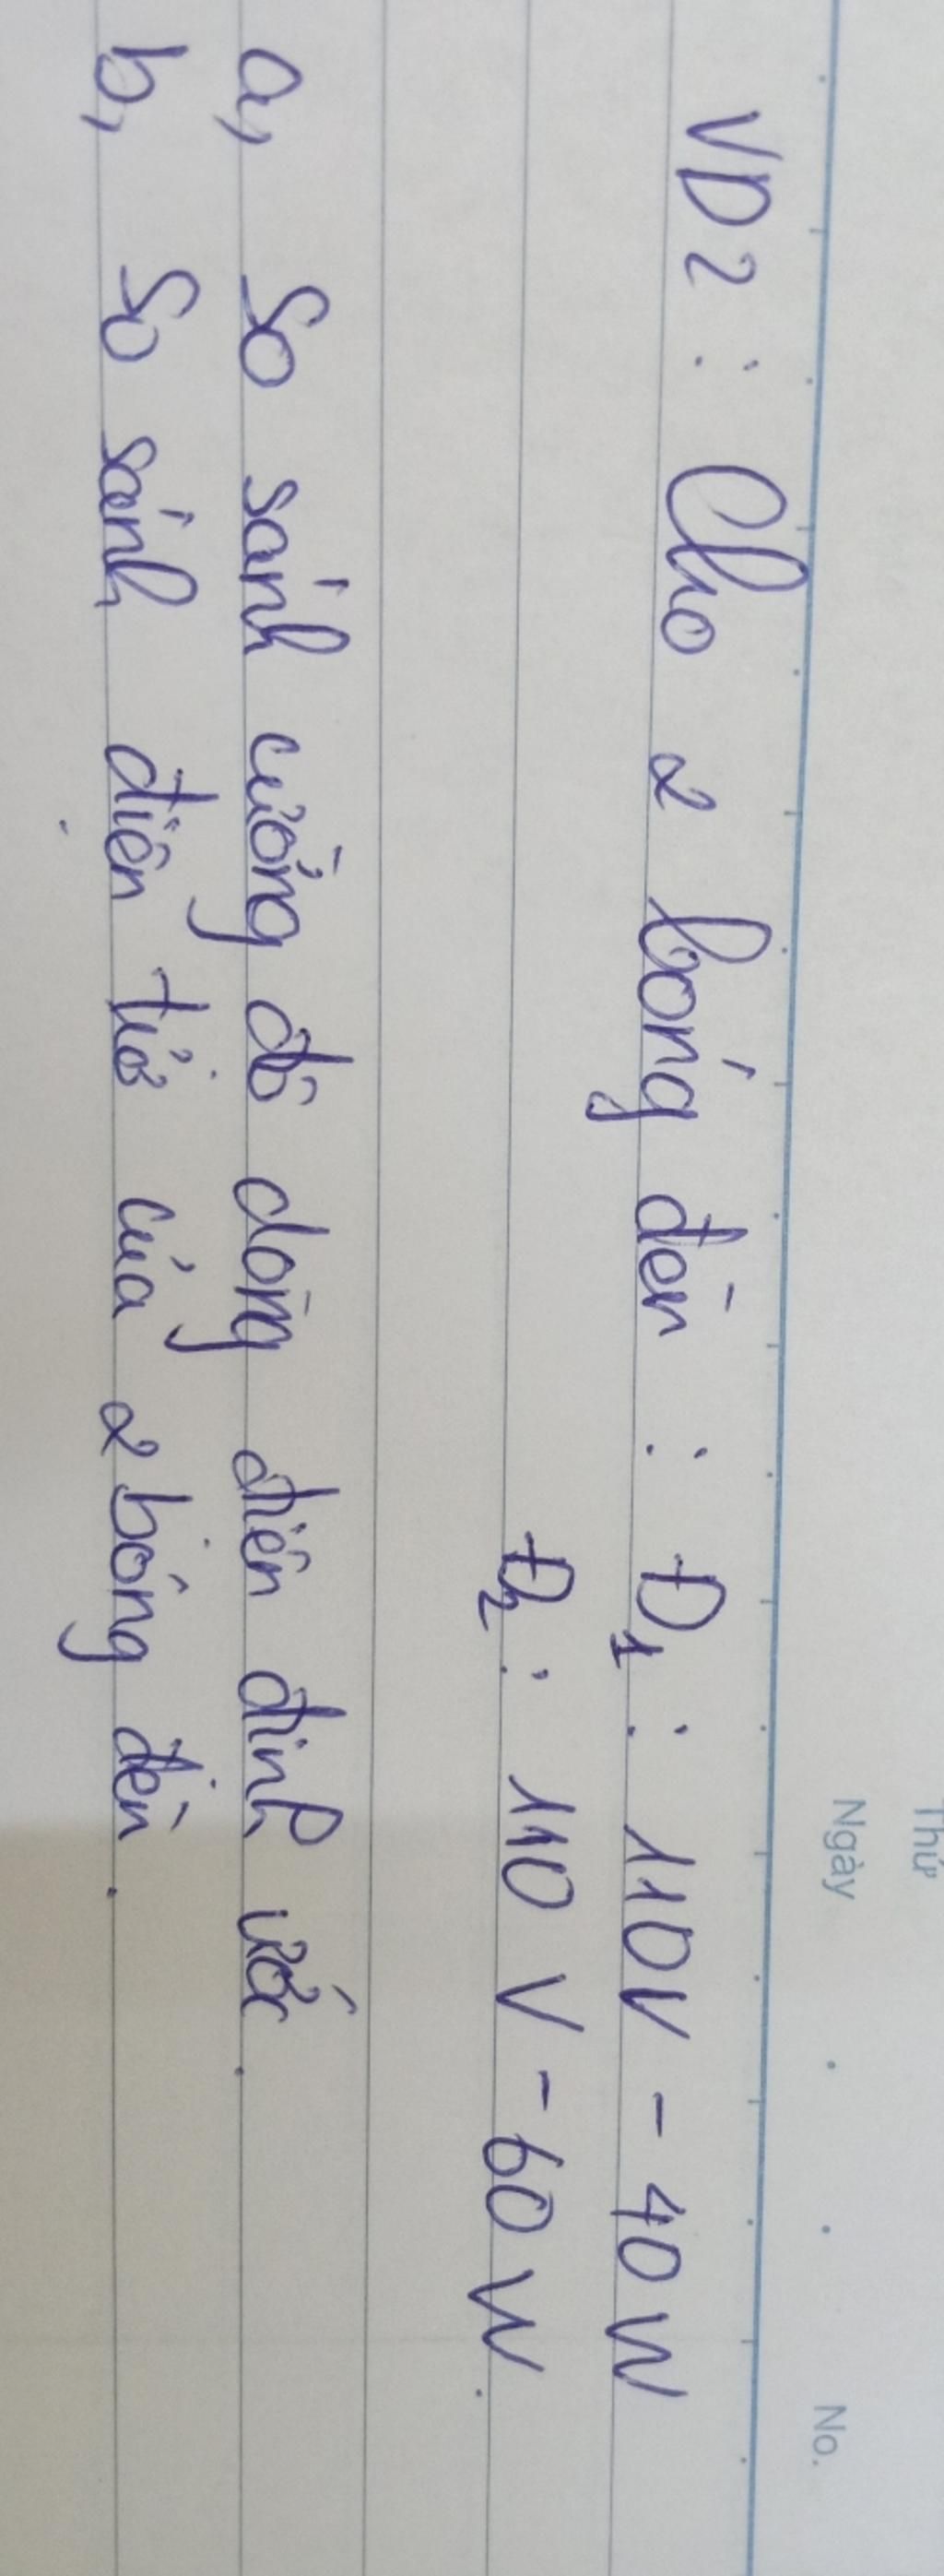 Thứ
Ngày No.
VD2 : Cho 2 bóng đèn : Đ1 : 110V - 40W
Đ2 : 110 V - 60 W.
a, So sánh cường độ dòng điện định ước.
b, So sánh điện trở của 2 bóng đèn.